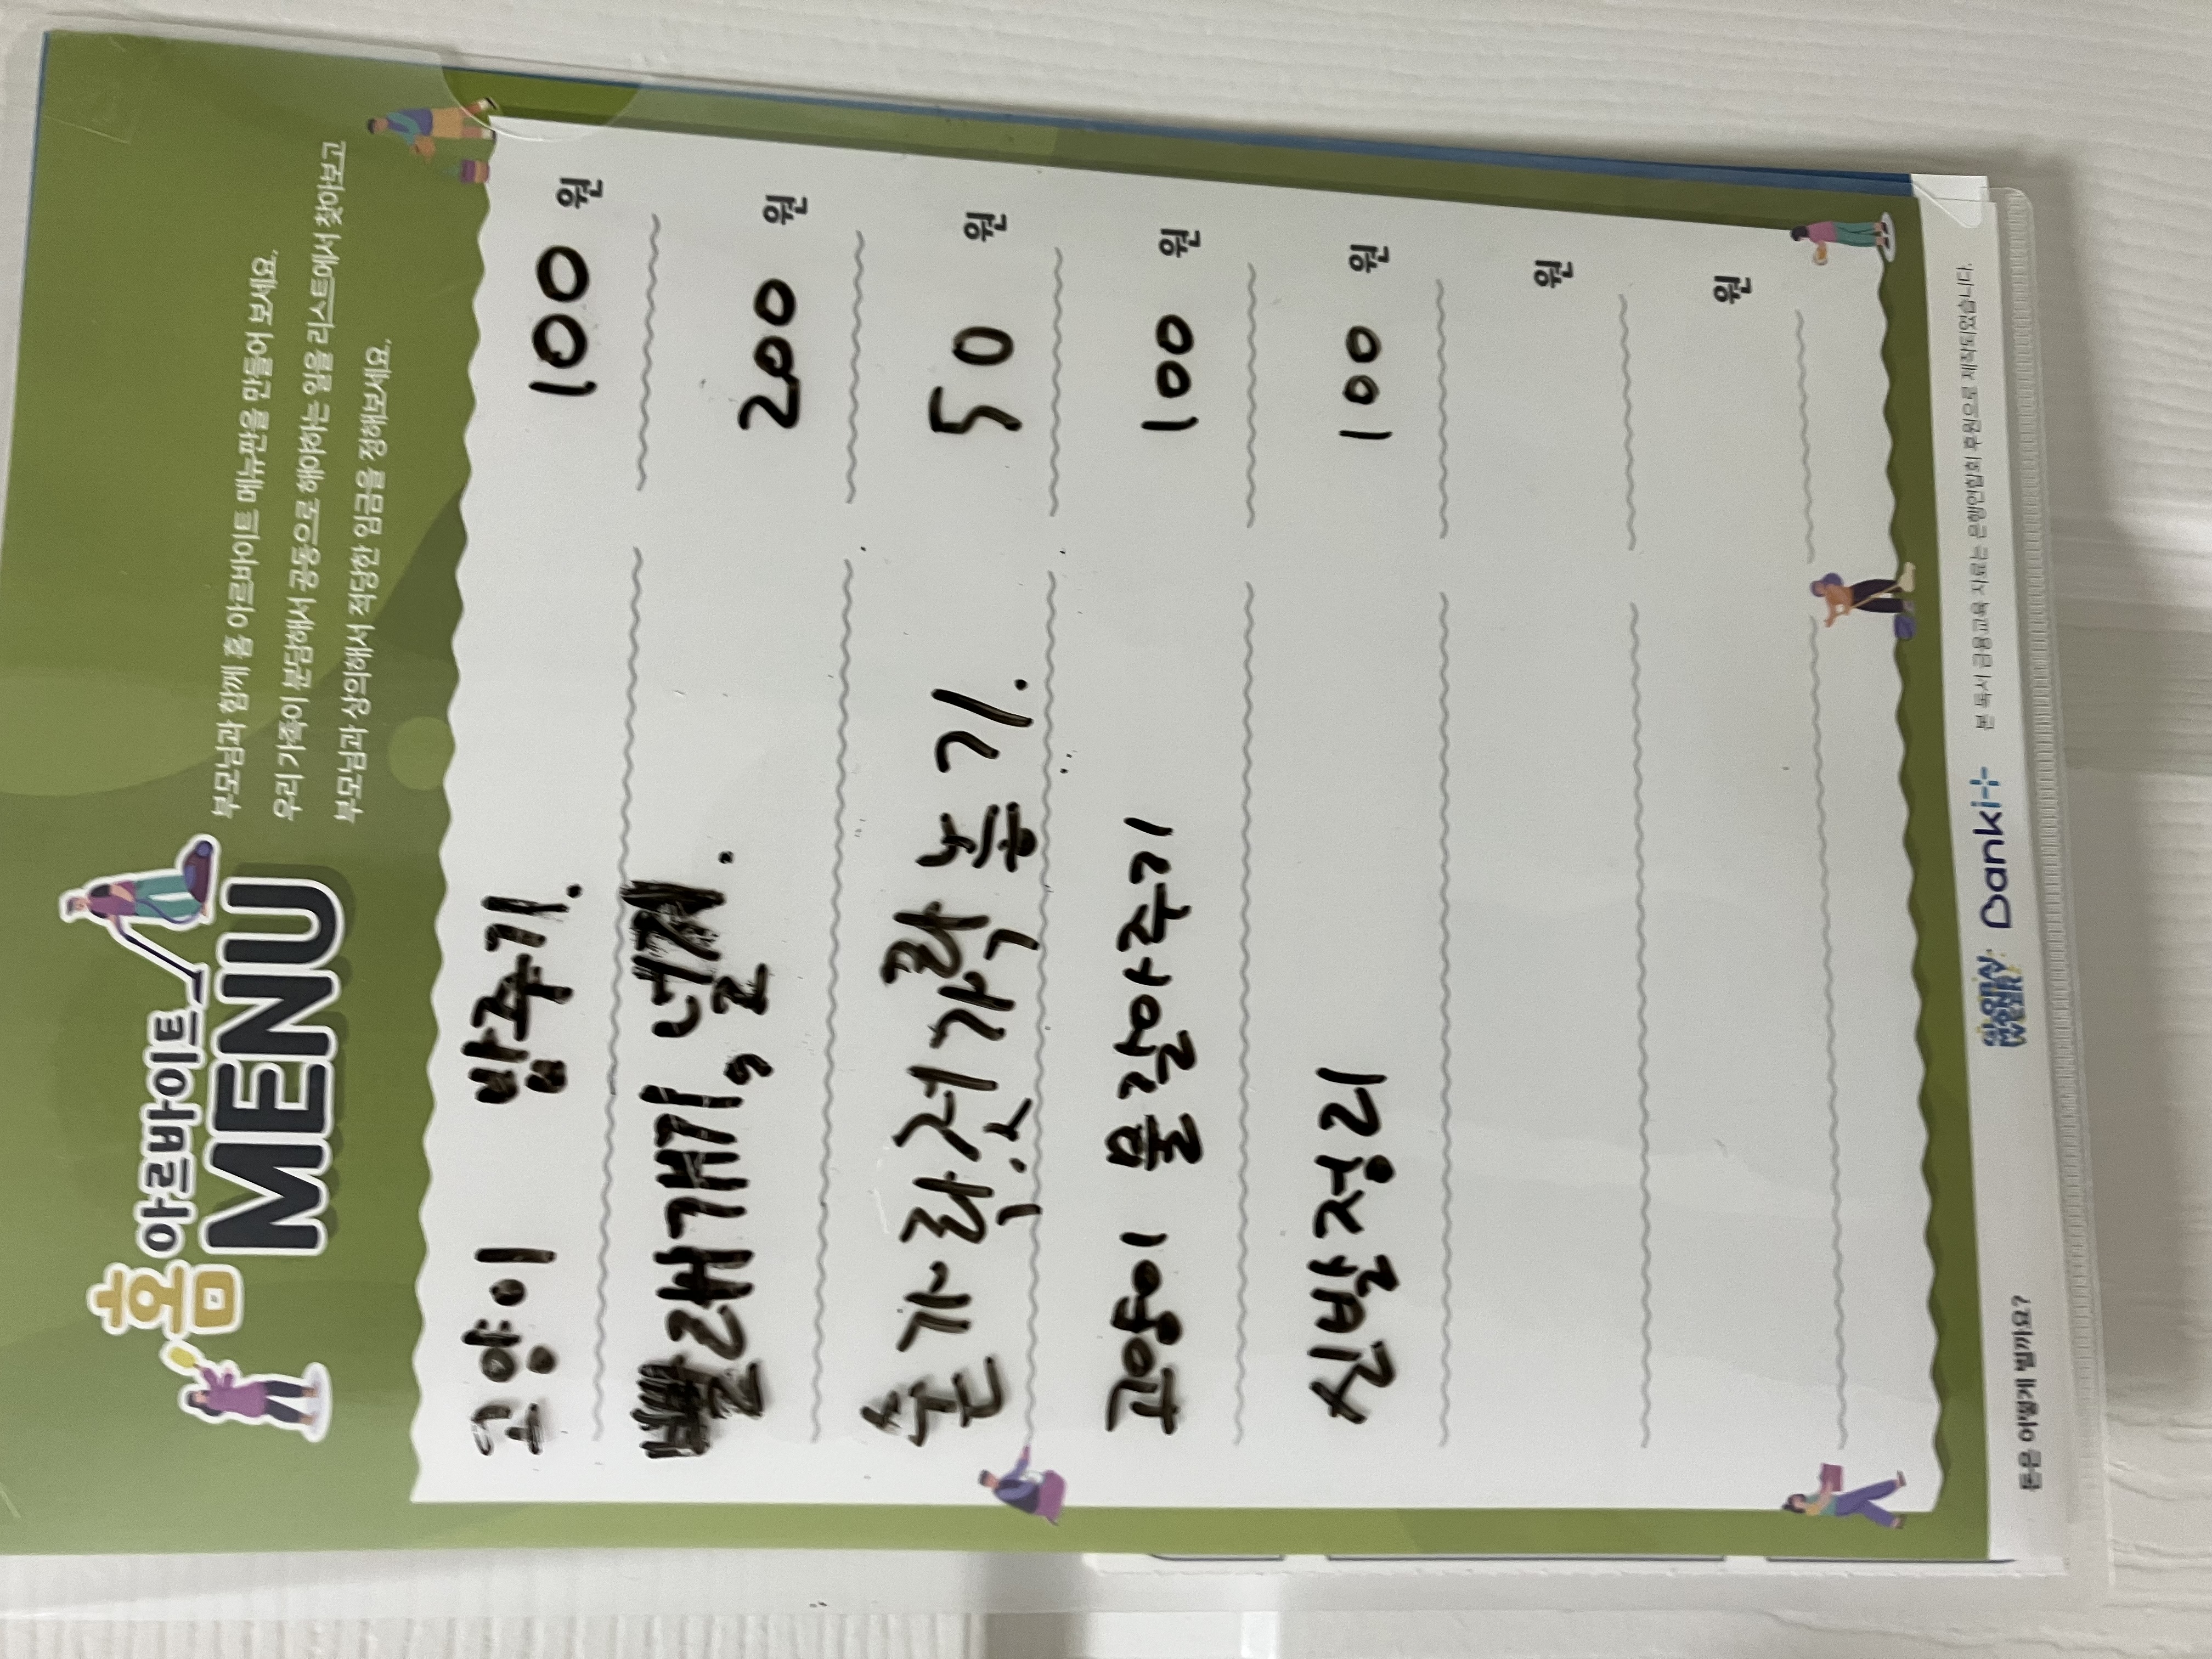 홈 아르바이트
MENU
부모님과 함께 홈 아르바이트 메뉴판을 만들어 보세요.
우리 가족이 분담해서 공동으로 해야하는 일을 리스트에서 찾아보고
부모님과 상의해서 적당한 임금을 정해보세요.
고양이 밥주기. 100 원
빨래개기, 널기. 200 원
숟가락, 젓가락 놓기. 50 원
고양이 물갈아주기 100 원
신발정리 100 원
원
원
돈은 어떻게 벌까요?
Danki
본 독서 금융교육 자료는 은행연합회 후원으로 제작되었습니다.